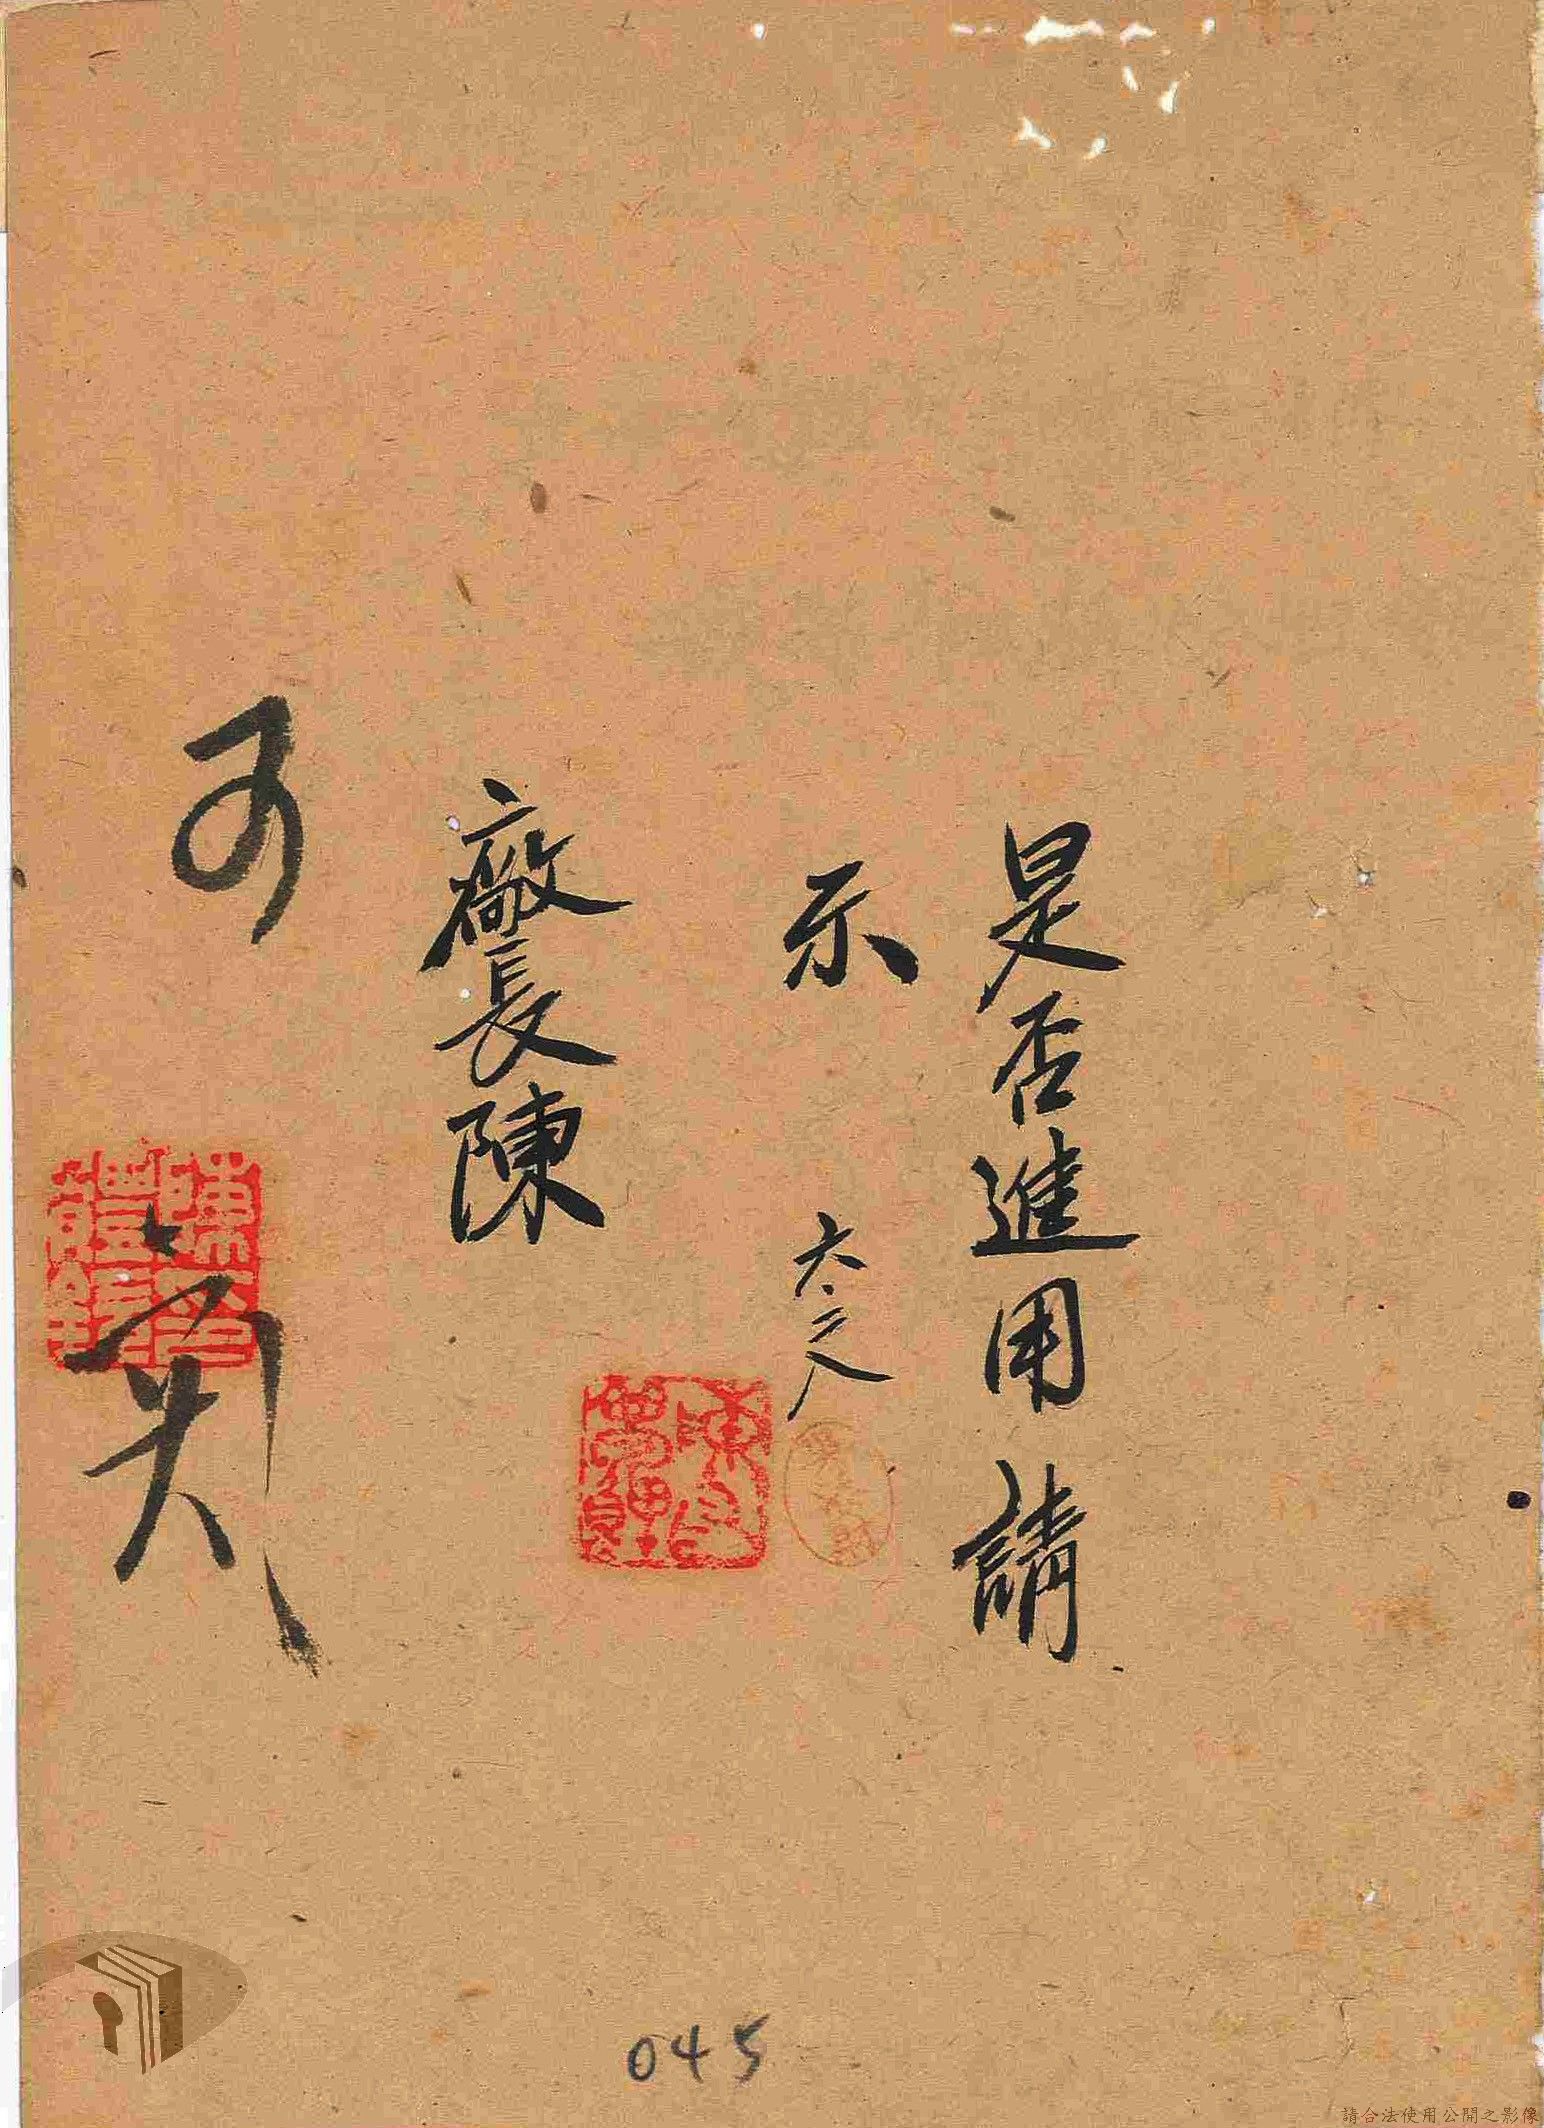 是否進用請
示
六.二八
廠長陳
可
045
請合法使用公開之影像